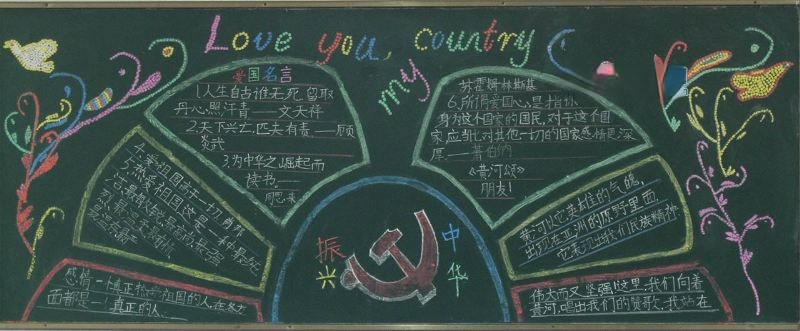 Love you, my country
爱国名言
1.人生自古谁无死,留取
丹心照汗青——文天祥
2.天下兴亡,匹夫有责——顾
炎武
3.为中华之崛起而
读书.——
周恩来
4.爱祖国高于一切
5.热爱祖国,这是一种最纯
感情,一個真正
面都是一個真正的人.
苏霍姆林斯基
6.所谓爱国心,是指你
身为这个国家的国民,对于这个国
家,应当比对其他一切的国家感情更深
厚.——萧伯纳
《黄河颂》
朋友!
黄河以它英雄的气魄,
出现在亚洲的原野里面
它表现出我们民族精神
伟大而又坚强!这里,我们向着
黄河,唱出我们的赞歌.我站在
振兴
中华